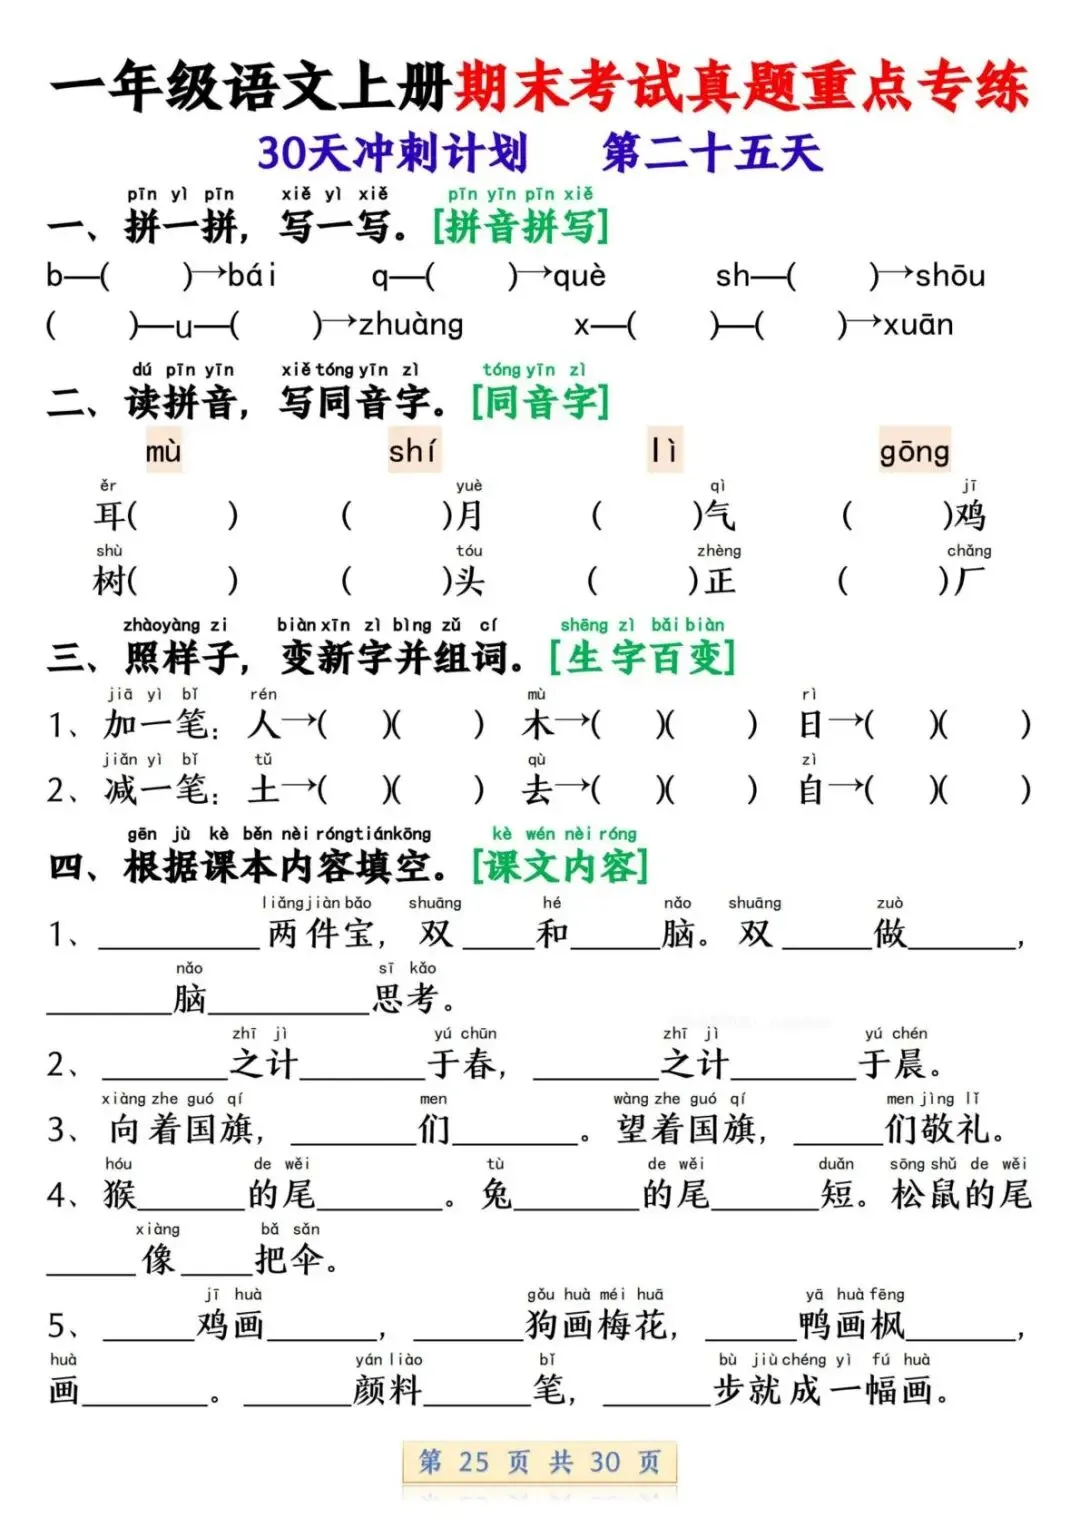 一年级语文上册期末考试真题重点专练
30天冲刺计划 第二十五天
pīn yì pīn xiě yì xiě pīn yīn pīn xiě
一、拼一拼，写一写。[拼音拼写]
b—( )→bái q—( )→què sh—( )→shōu
( )—u—( )→zhuàng x—( )—( )→xuān
dú pīn yīn xiě tóng yīn zì tóng yīn zì
二、读拼音，写同音字。[同音字]
mù shí lì gōng
ěr yuè qì jī
耳( ) ( )月 ( )气 ( )鸡
shù tóu zhèng chǎng
树( ) ( )头 ( )正 ( )厂
zhàoyàng zi biàn xīn zì bìng zǔ cí shēng zì bǎi biàn
三、照样子，变新字并组词。[生字百变]
jiā yì bǐ rén mù rì
1、加一笔：人→( )( ) 木→( )( ) 日→( )( )
jiǎn yì bǐ tǔ qù zì
2、减一笔：土→( )( ) 去→( )( ) 自→( )( )
gēn jù kè běn nèi róng tián kōng kè wén nèi róng
四、根据课本内容填空。[课文内容]
liǎng jiàn bǎo shuāng hé nǎo shuāng zuò
1、_________两件宝，双____和_____脑。双_____做______，
nǎo sī kǎo
_______脑_________思考。
zhī jì yú chūn zhī jì yú chén
2、_______之计_______于春，_______之计_______于晨。
xiàng zhe guó qí men wàng zhe guó qí men jìng lǐ
3、向着国旗，_______们_______。望着国旗，_____们敬礼。
hóu de wěi tù de wěi duǎn sōng shǔ de wěi
4、猴______的尾_______。兔_______的尾______短。松鼠的尾
xiàng bǎ sǎn
_____像____把伞。
jī huà gǒu huà méi huā yā huà fēng
5、_____鸡画______，______狗画梅花，_____鸭画枫______，
huà yán liào bǐ bù jiù chéng yì fú huà
画_______。______颜料______笔，______步就成一幅画。
第 25 页 共 30 页